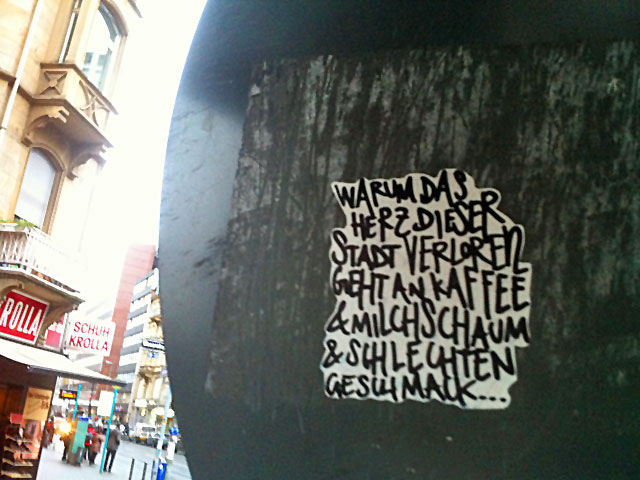 WARUM DAS
HERZ DIESER
STADT VERLOREN
GEHT AN KAFFEE
& MILCHSCHAUM
& SCHLECHTEN
GESCHMACK...
KROLLA
SCHUH
KROLLA